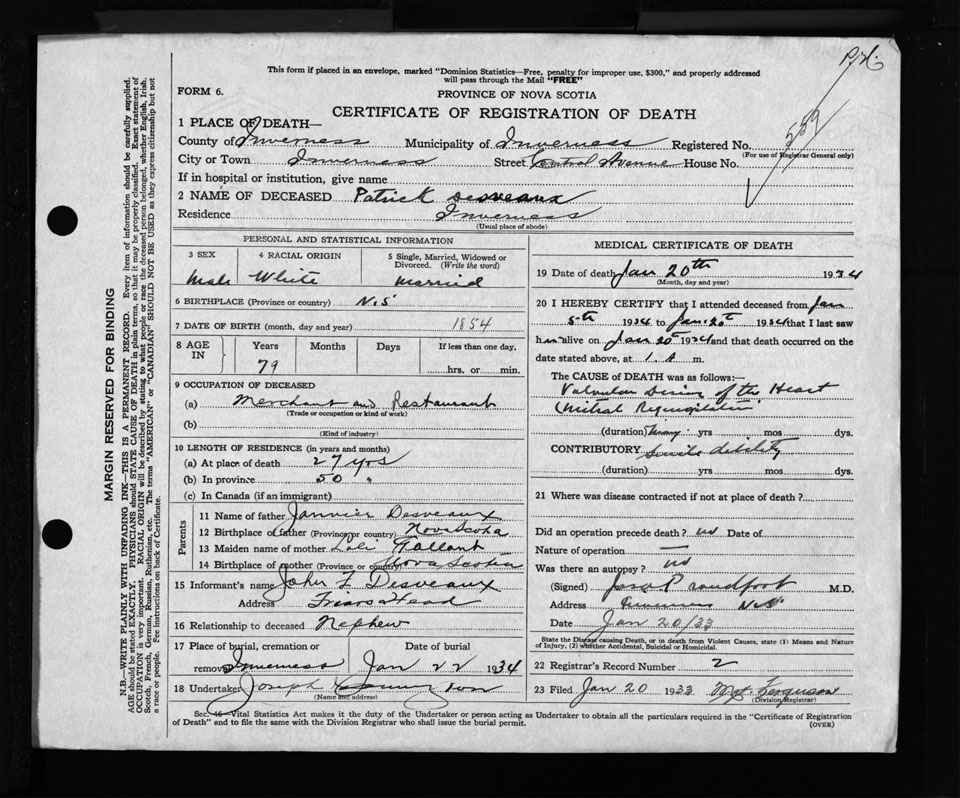 P.H.
This form if placed in an envelope, marked "Dominion Statistics—Free, penalty for improper use, $300," and properly addressed
will pass through the Mail "FREE"
FORM 6.
PROVINCE OF NOVA SCOTIA
CERTIFICATE OF REGISTRATION OF DEATH
559
1 PLACE OF DEATH—
County of Inverness Municipality of Inverness Registered No.
(For use of Registrar General only)
City or Town Inverness Street Central Avenue House No.
If in hospital or institution, give name
2 NAME OF DECEASED Patrick Desveaux
Residence Inverness
(Usual place of abode)
PERSONAL AND STATISTICAL INFORMATION
3 SEX 4 RACIAL ORIGIN 5 Single, Married, Widowed or Divorced. (Write the word)
Male White Married
6 BIRTHPLACE (Province or country) N.S
7 DATE OF BIRTH (month, day and year) 1854
8 AGE IN Years Months Days If less than one day.
79 hrs. or min.
9 OCCUPATION OF DECEASED
(a) Merchant and Restaurant
(Trade or occupation or kind of work)
(b)
(Kind of industry)
10 LENGTH OF RESIDENCE (in years and months)
(a) At place of death 27 yrs
(b) In province 50 "
(c) In Canada (if an immigrant)
Parents
11 Name of father Janvier Desveaux
12 Birthplace of father (Province or country) Nova Scotia
13 Maiden name of mother Gallant
14 Birthplace of mother (Province or country) Nova Scotia
15 Informant's name John F Desveaux
Address Friars Head
16 Relationship to deceased Nephew
17 Place of burial, cremation or removal Date of burial
Inverness Jan 22 1934
18 Undertaker Joseph
(Name and address)
MEDICAL CERTIFICATE OF DEATH
19 Date of death Jan 20th 1934
(Month, day and year)
20 I HEREBY CERTIFY that I attended deceased from Jan
5th 1934 to Jan. 20th 1934 that I last saw
him alive on Jan 20th 1934 and that death occurred on the
date stated above, at 1. A m.
The CAUSE of DEATH was as follows:—
Valvular Disease of the Heart
(Mitral Regurgitation)
(duration) Many yrs mos dys.
CONTRIBUTORY Senile debility
(duration) yrs mos dys.
21 Where was disease contracted if not at place of death?
Did an operation precede death? no Date of
Nature of operation —
Was there an autopsy? no
(Signed) Proudfoot M.D.
Address Inverness N.S
Date Jan 20/33
State the Disease causing Death, or in death from Violent Causes, state (1) Means and Nature
of Injury, (2) whether Accidental, Suicidal or Homicidal.
22 Registrar's Record Number 2
23 Filed Jan 20 1933 Mgt. Ferguson
(Division Registrar)
Sec. 46—Vital Statistics Act makes it the duty of the Undertaker or person acting as Undertaker to obtain all the particulars required in the "Certificate of Registration
of Death" and to file the same with the Division Registrar who shall issue the burial permit.
(OVER)
MARGIN RESERVED FOR BINDING
N.B.—WRITE PLAINLY WITH UNFADING INK—THIS IS A PERMANENT RECORD. Every item of information should be carefully supplied.
AGE should be stated EXACTLY. PHYSICIANS should STATE CAUSE OF DEATH in plain terms, so that it may be properly classified. Exact statement of
OCCUPATION is very important. RACIAL ORIGIN will be described by stating to what people or race the deceased person belonged, whether English, Irish,
Scotch, French, German, Russian, Ruthenian, etc. The terms "AMERICAN" or "CANADIAN" SHOULD NOT BE USED as they express citizenship but not
a race or people. See instructions on back of Certificate.